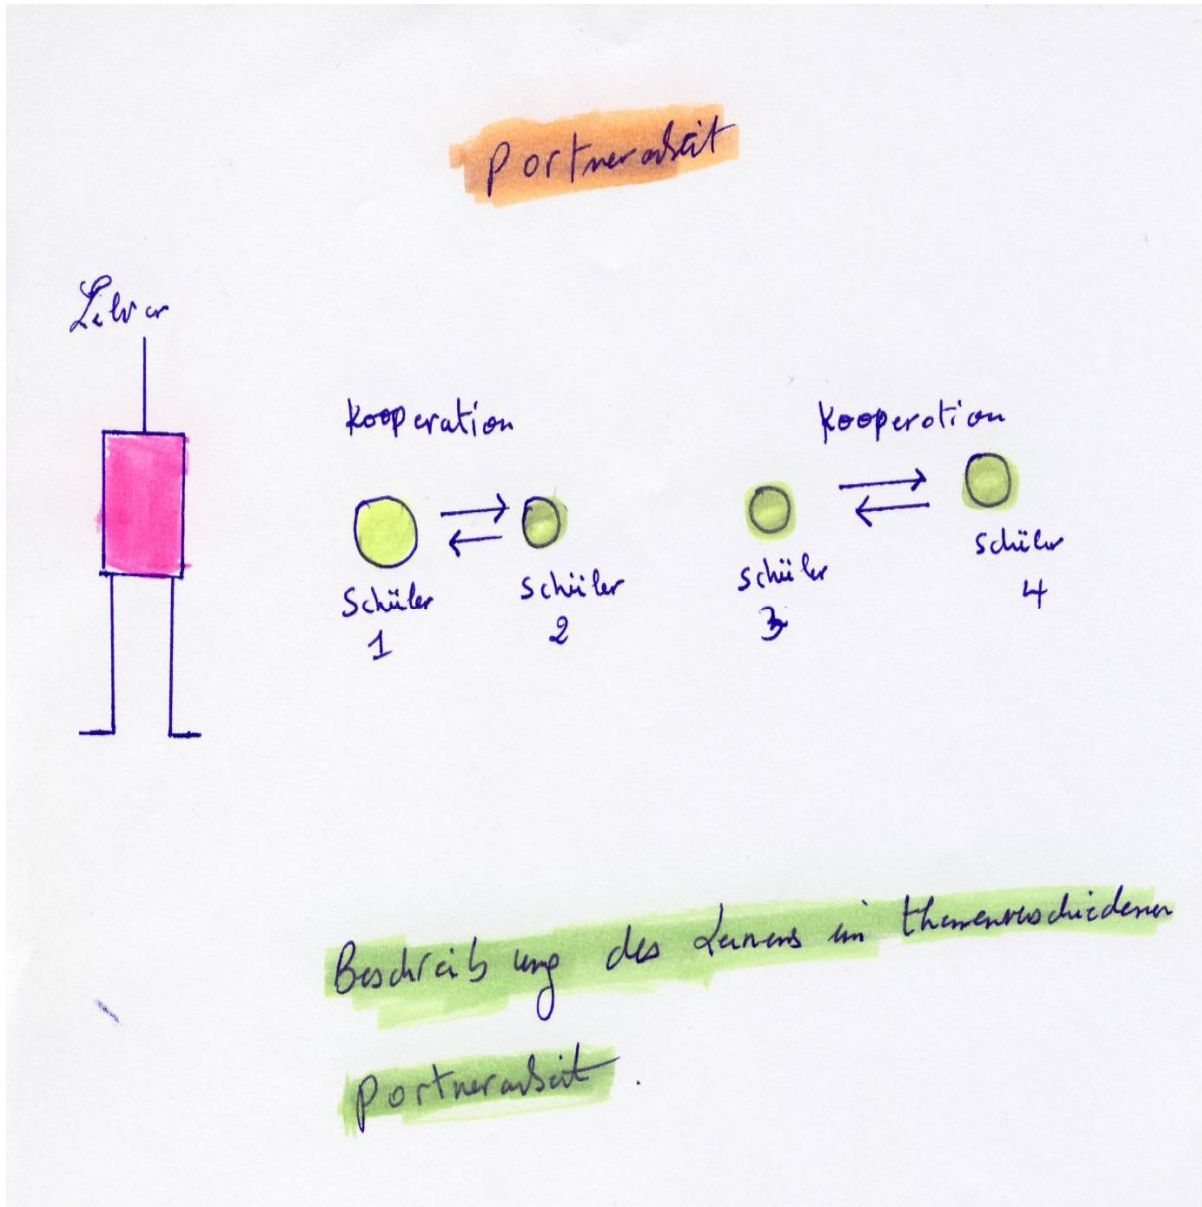 Partnerarbeit
Lehrer
Kooperation
Kooperation
Schüler
1
Schüler
2
Schüler
3
Schüler
4
Beschreibung des Lernens in themenverschiedener
Partnerarbeit.